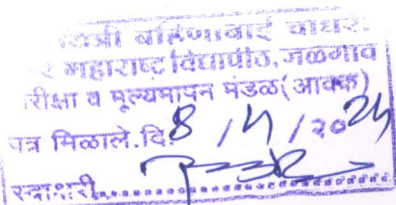 बहिणाबाई चौधरी
महाराष्ट्र विद्यापीठ, जळगाव
रीक्षा व मूल्यमापन मंडळ(आवक)
पत्र मिळाले.दि.8 / 4 / २०24
स्वाक्षरी